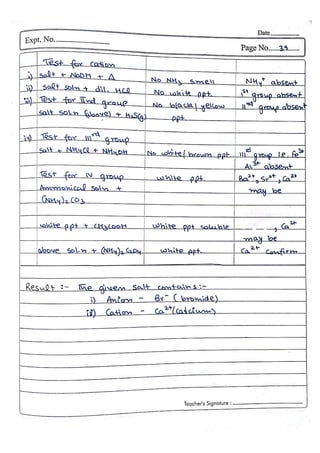 Date
Expt. No.
Page No. 39
Test for cation
i) salt + NaOH + Δ No NH3 smell NH4+ absent
ii) salt soln + dil. HCl No white ppt. Ist group absent
iii) Test for IInd group No black/yellow IInd group absent
salt soln (above) + H2S(g) ppt.
iv) Test for IIIrd group
salt + NH4Cl + NH4OH No white/brown ppt IIIrd group i.e. Fe3+
Al3+ absent
Test for IV group white ppt. Ba2+, Sr2+, Ca2+
Ammonical soln + may be
(NH4)2CO3
white ppt + CH3COOH white ppt soluble , Ca2+
may be
above soln + (NH4)2C2O4 white ppt. Ca2+ confirm
Result :- The given salt contains :-
i) Anion - Br- (bromide)
ii) Cation - Ca2+ (calcium)
Teacher's Signature :